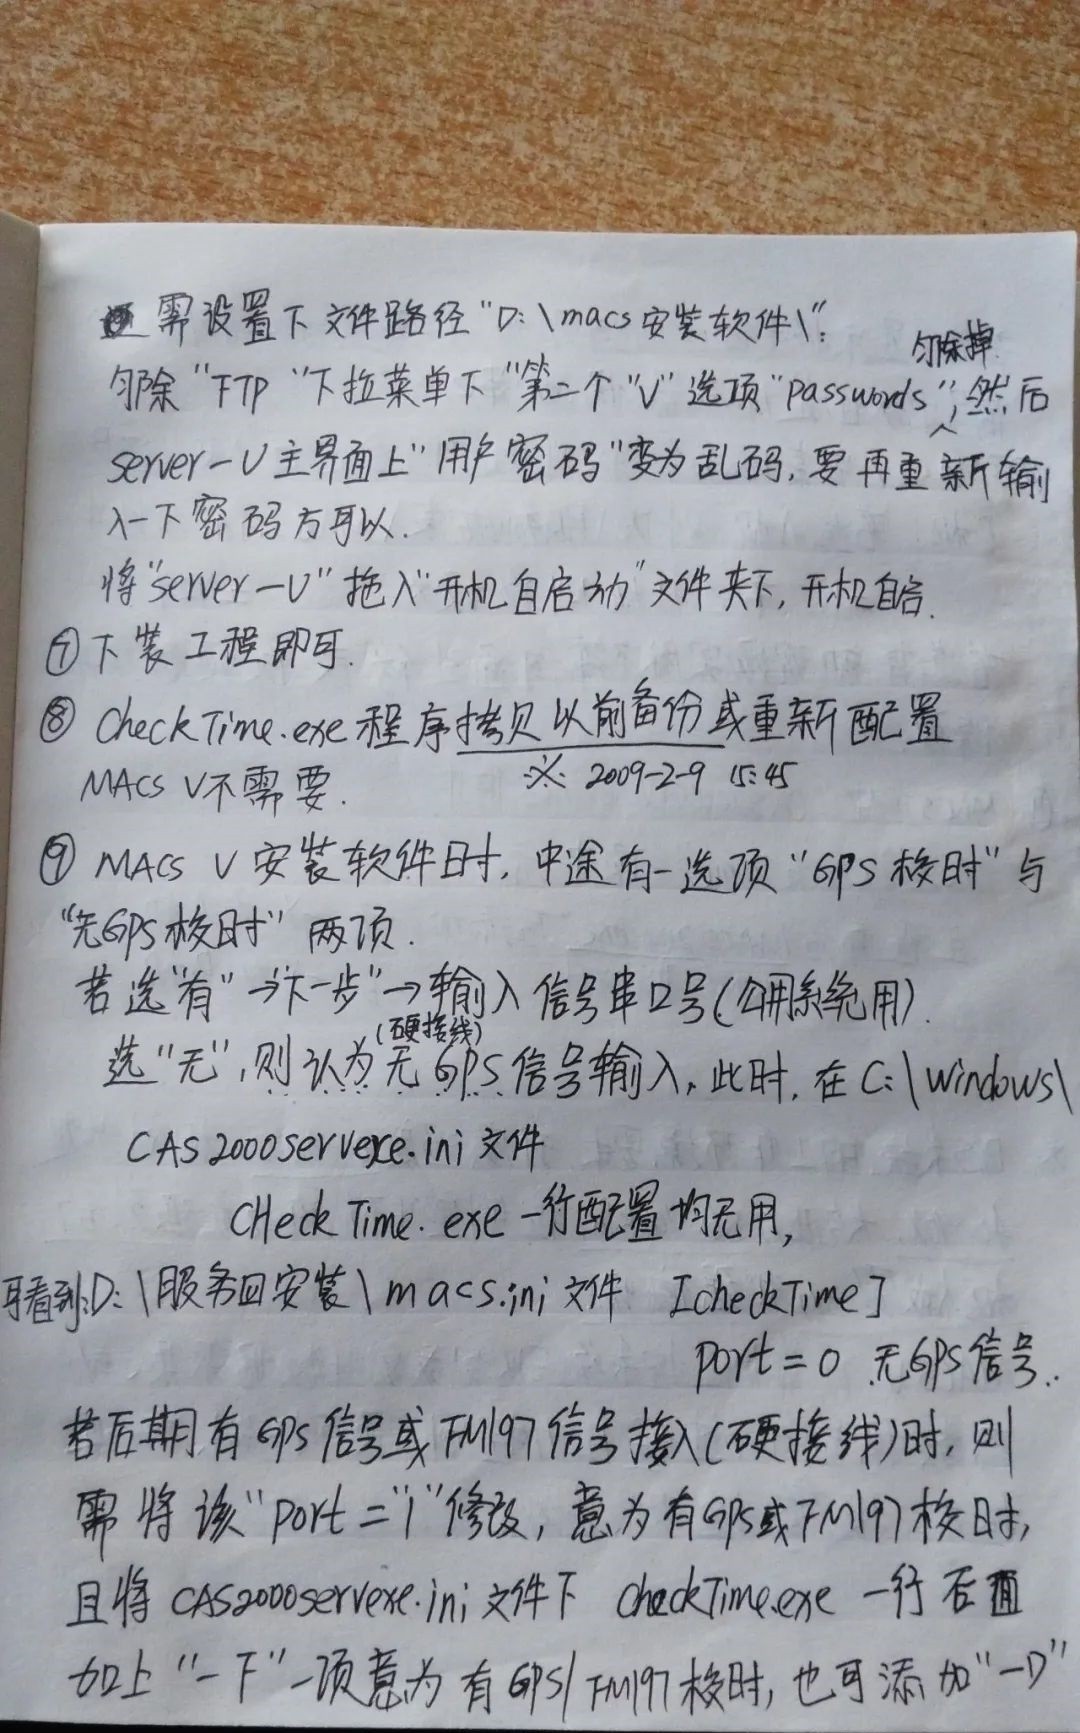 还需设置下文件路径"D:\macs安装软件\":
勾除掉
勾除"FTP"下拉菜单下"第二个"V"选项"passwords",然后
server-U主界面上"用户密码"变为乱码,要再重新输
入一下密码方可以.
将"server-U"拖入"开机自启动"文件夹下,开机自启.
⑦下装工程即可.
⑧ CheckTime.exe程序拷贝以前备份或重新配置
MACS V不需要. ※ 2009-2-9 15:45
⑨ MACS V 安装软件时,中途有一选项"GPS校时"与
"无GPS校时"两项.
若选"有"→"下一步"→输入信号串口号(公用系统用).
(硬接线)
选"无",则认为无GPS信号输入,此时,在C:\Windows\
CAS2000serverxe.ini文件
CHeckTime.exe一行配置均无用,
再看到:D:\服务口安装\macs.ini文件 [checkTime]
port=0 无GPS信号..
若后期有GPS信号或FM197信号接入(硬接线)时,则
需将该"port="1"修改,意为有GPS或FM197校时,
且将CAS2000serverxe.ini文件下 checkTime.exe一行后面
加上"-下"一项意为有GPS/FM197校时,也可添加"-D"